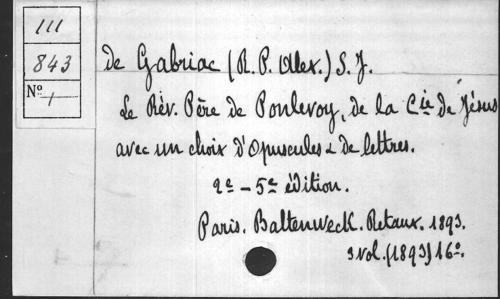 III
843
Nº 1
de Gabriac (R. P. Alex.) S. J.
Le Rév. Père de Ponlevoy, de la Cie de Jésus
avec un choix d'Opuscules & de lettres.
2e - 5e édition.
Paris. Baltenweck. Retaux. 1893.
3 vol. (1893) 16º.